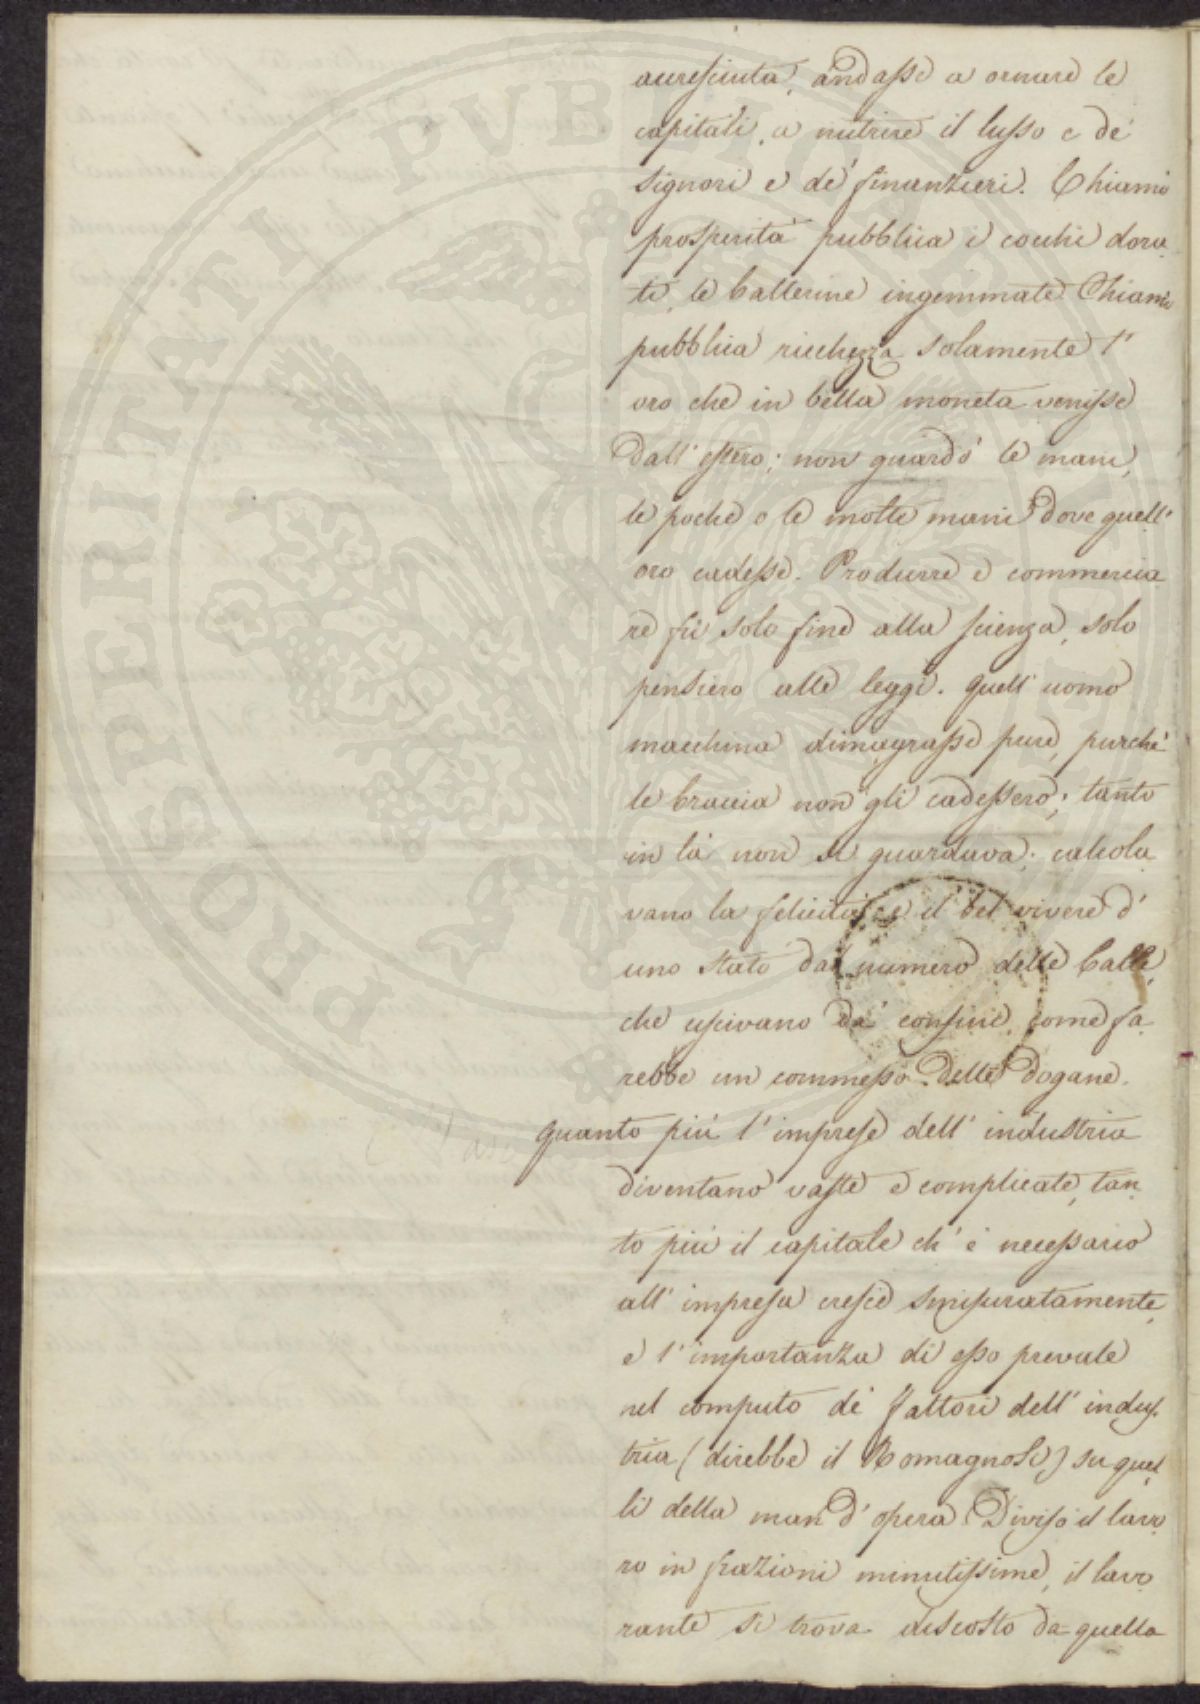 accresciuta, andasse a ornare le
capitali, a nutrire il lusso e de'
signori e de' finanzieri. Chiamò
prosperità pubblica i cocchi dora
ti, le ballerine ingemmate. Chiamò
pubblica ricchezza solamente l'
oro che in bella moneta venisse
dall'estero; non guardò le mani,
le poche o le molte mani dove quell'
oro cadesse. Produrre e commercia
re fù solo fine alla scienza, solo
pensiero alle leggi. Quell'uomo
macchina dimagrasse pure, purché
le braccia non gli cadessero; tanto
in là non si guardava; calcola
vano la felicità e il bel vivere d'
uno stato dal numero delle balle,
che uscivano da' confini, come fa
rebbe un commesso delle dogane.
Quanto più l'imprese dell'industria
diventano vaste e complicate, tan
to più il capitale ch'è necessario
all'impresa cresce smisuratamente,
e l'importanza di esso prevale
nel computo de' fattori dell'indus
tria (direbbe il Romagnosi) su quel
li della man d'opera. Diviso il lavo
ro in frazioni minutissime, il lavo
rante si trova discosto da quella
PROSPERITATI PVBLICAE